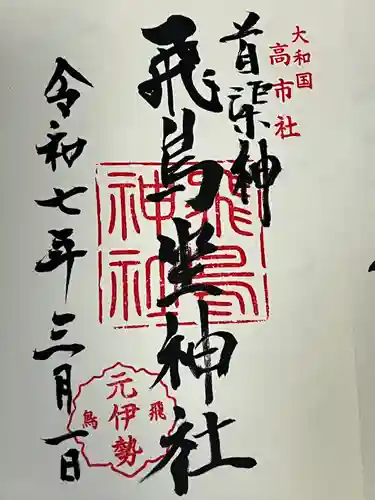 大和国
高市社
首渠神
飛鳥坐神社
飛鳥
神社
令和七年三月一日
元伊勢
飛鳥